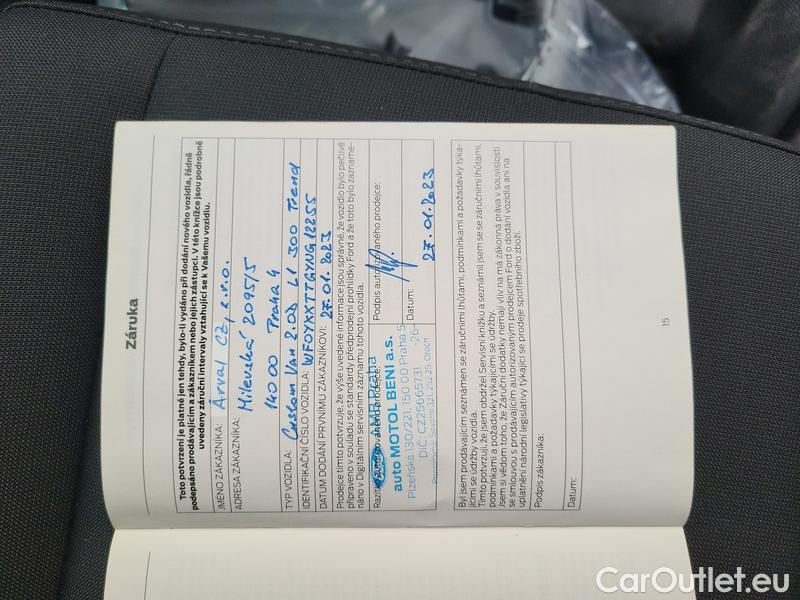 Záruka
Toto potvrzení je platné jen tehdy, bylo-li vydáno při dodání nového vozidla, řádně
podepsáno prodávajícím a zákazníkem nebo jejich zástupci. V této knížce jsou podrobně
uvedeny záruční intervaly vztahující se k Vašemu vozidlu.
JMÉNO ZÁKAZNÍKA: Arval CZ, s.r.o.
ADRESA ZÁKAZNÍKA: Milevská 2095/5
140 00 Praha 4
TYP VOZIDLA: Custom Van 2.0D L1 300 Trend
IDENTIFIKAČNÍ ČÍSLO VOZIDLA: WF0YXXTTGYNG12255
DATUM DODÁNÍ PRVNÍMU ZÁKAZNÍKOVI: 27.01.2023
Prodejce tímto potvrzuje, že výše uvedené informace jsou správné, že vozidlo bylo pečlivě
připraveno v souladu se standardy předprodejní prohlídky Ford a že toto bylo zazname-
náno v Digitálním servisním záznamu tohoto vozidla.
Podpis autorizovaného prodejce:
auto MOTOL BENI a.s.
Plzeňská 130/221, 150 00 Praha 5
DIČ: CZ25665731 -26-
Datum: 27.01.2023
Byl jsem prodávajícím seznámen se záručními lhůtami, podmínkami a požadavky týka-
jícími se údržby vozidla.
Tímto potvrzuji, že jsem obdržel Servisní knížku a seznámil jsem se se záručními lhůtami,
podmínkami a požadavky týkajícími se údržby.
Jsem si vědom toho, že Záruční dodatky nemají vliv na má zákonná práva v souvislosti
se smlouvou s prodávajícím autorizovaným prodejcem Ford o dodání vozidla ani na
uplatnění národní legislativy týkající se prodeje spotřebního zboží.
Podpis zákazníka:
Datum:
15
CarOutlet.eu